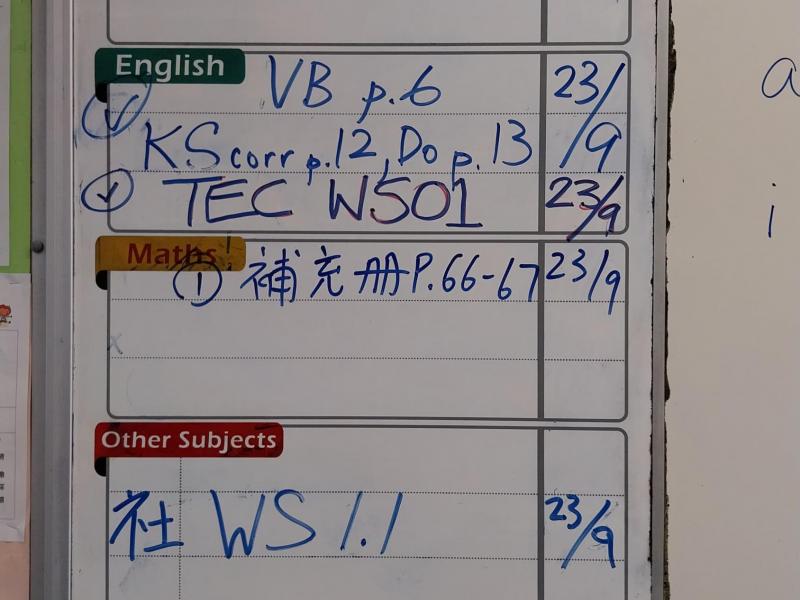 English
VB p.6 23/9
K.S corr p.12, Do p.13
TEC WS01 23/9
Maths
① 補充册P.66-67 23/9
Other Subjects
社 WS 1.1 23/9
a
i